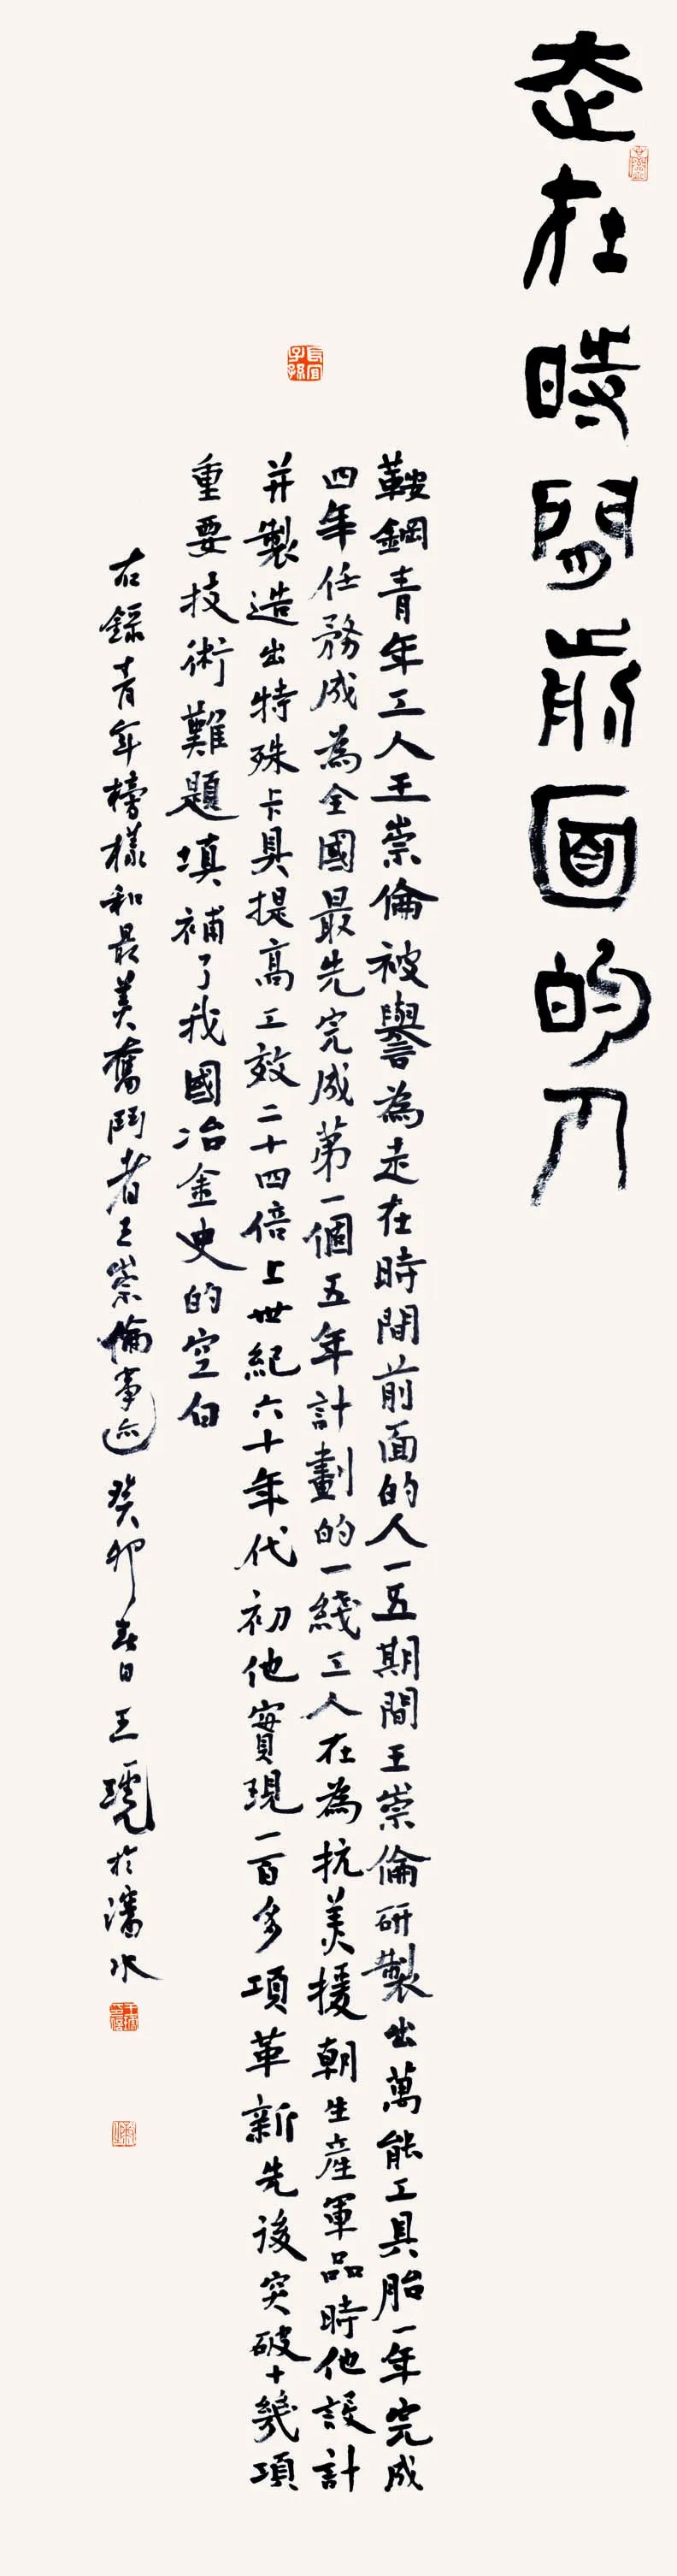 走在時間前面的人
鞍鋼青年工人王崇倫被譽為走在時間前面的人一五期間王崇倫研製出萬能工具胎一年完成
四年任務成為全國最先完成第一個五年計劃的一綫工人在為抗美援朝生產軍品時他設計
并製造出特殊卡具提高工效二十四倍上世紀六十年代初他實現一百多項革新先後突破十幾項
重要技術難題填補了我國冶金史的空白
右錄青年榜樣和最美奮鬥者王崇倫事迹癸卯春日王琥於瀋水
長宜子孫